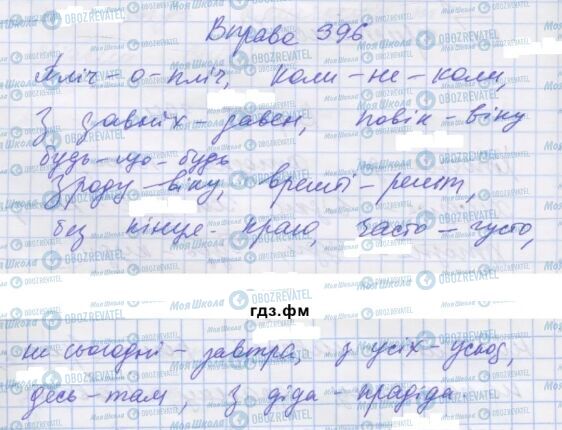 Вправа 396
Пліч-о-пліч, коли-не-коли,
З давніх-давен, повік-віку
будь-що-будь
Зроду-віку, врешті-решт,
без кінця-краю, часто-густо,
гдз.фм
не сьогодні-завтра, з усіх-усюд,
десь-там, з діда-прадіда